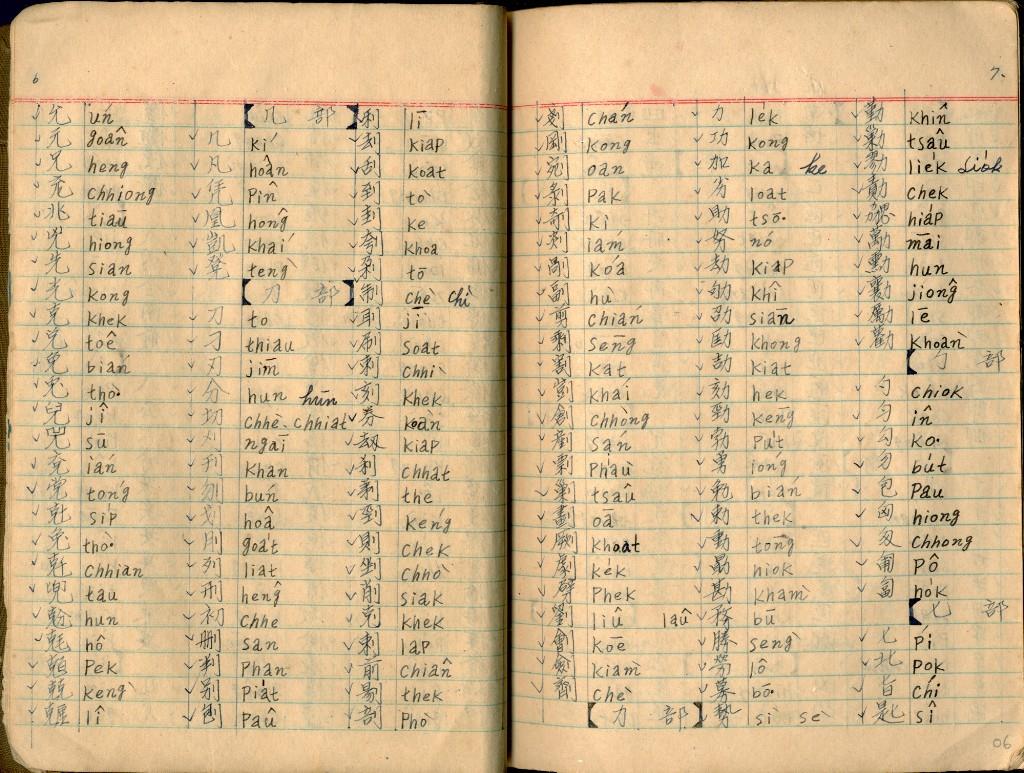 6
允 ún
元 goân
兄 heng
充 chhiong
兆 tiāu
兇 hiong
先 sian
光 kong
克 khek
兌 toē
免 bián
兔 thò·
兒 jî
兕 sū
兗 ián
党 tóng
si̍p
兔 thò·
chhian
兜 tau
hun
hô
pek
兢 keng
lî
【几 部】
几 kí
凡 hoân
凭 pîn
凰 hông
凱 khái
凳 tèng
【刀 部】
刀 to
刁 thiau
刃 jīm
分 hun hūn
切 chhè. chhiat
刈 ngāi
刊 khan
刎 bún
划 hoâ
刖 goa̍t
列 lia̍t
刑 hêng
初 chhe
删 san
判 phàn
别 pia̍t
刨 pâu
利 lī
刦 kiap
刮 koat
到 tò
刲 ke
刳 khoa
刴 tō
制 chè chì
刵 jī
刷 soat
刺 chhì
刻 khek
券 koàn
刼 kiap
刹 chhat
剃 thè
剄 kéng
則 chek
剉 chhò
削 siak
剋 khek
剌 la̍p
前 chiân
剔 thek
剖 phò
7.
剗 chán
剛 kong
剜 oan
剝 pak
剞 ki
剡 iám
剮 kóa
副 hù
剪 chián
剩 sēng
割 kat
剴 khái
創 chhòng
san
剽 phàu
剿 tsâu
劃 oā
劂 khoat
劇 ke̍k
劈 phek
劉 liû lâu
劊 koē
劍 kiàm
劑 chè
【力 部】
力 le̍k
功 kong
加 ka ke
劣 loat
助 tsō·
努 nó
劫 kiap
劬 khî
劭 siān
劻 khong
劼 kiat
劾 hek
勁 kēng
勃 pu̍t
勇 ióng
勉 bián
勅 thek
動 tōng
勗 hiok
勘 kham
務 bū
勝 sèng
勞 lô
募 bō·
勢 sì sè
勤 khîn
勦 tsâu
勠 lie̍k lio̍k
勣 chek
勰 hia̍p
勱 māi
勳 hun
勷 jiông
勵 lē
勸 khoàn
【勹 部】
勺 chiok
匀 în
勾 ko·
勿 bu̍t
包 pau
匈 hiong
匆 chhong
匍 pô
匐 ho̍k
【匕 部】
匕 pí
北 pok
旨 chí
匙 sî
06